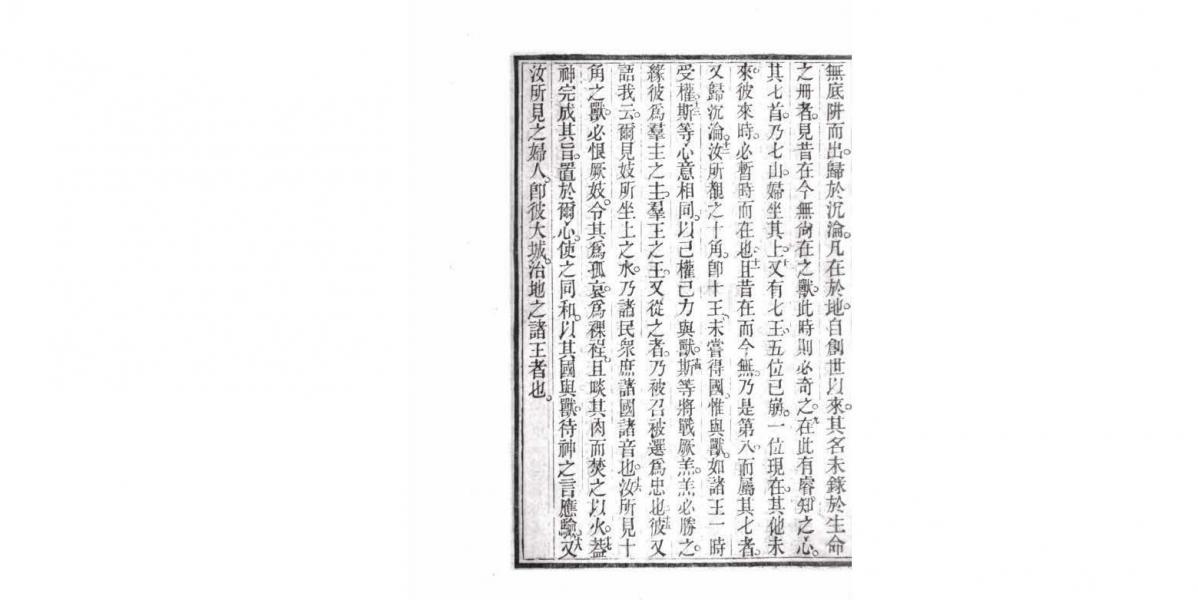 無底阱而出。歸於沉淪。凡在於地。自創世以來。其名未錄於生命
之冊者。見昔在今無尙在之獸。此時則必奇之。九在此有睿知之心。
其七首。乃七山。婦坐其上。十又有七王。五位已崩。一位現在。其他未
來。彼來時。必暫時而在也。十一且昔在而今無。乃是第八。而屬其七者。
又歸沉淪。十二汝所覩之十角。卽十王。未嘗得國。惟與獸。如諸王一時
受權。十三斯等心意相同。以己權己力與獸。十四斯等將戰厥羔。羔必勝之。
緣彼爲羣主之主。羣王之王。又從之者。乃被召被選爲忠也。十五彼又
語我云。爾見妓所坐上之水。乃諸民衆庶諸國諸音也。十六汝所見十
角之獸。必恨厥妓。令其爲孤哀。爲裸裎。且啖其肉而焚之以火。十七蓋
神完成其旨。置於爾心。使之同和。以其國與獸。待神之言應驗。十八又
汝所見之婦人。卽彼大城。治地之諸王者也。